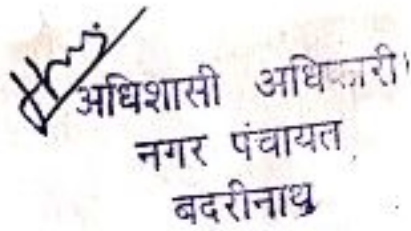 अधिशासी अधिकारी।
नगर पंचायत
बदरीनाथ